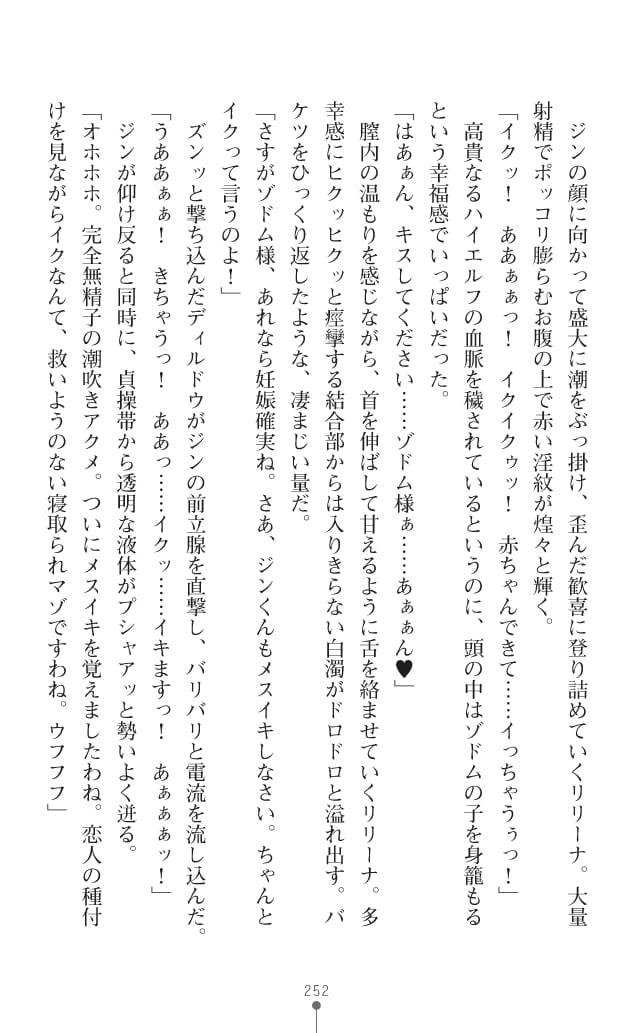 ジンの顔に向かって盛大に潮をぶっ掛け、歪んだ歓喜に登り詰めていくリリーナ。大量
射精でポッコリ膨らむお腹の上で赤い淫紋が煌々と輝く。
「イクッ！　ああぁぁっ！　イクイクゥッ！　赤ちゃんできて……イっちゃうぅっ！」
高貴なるハイエルフの血脈を穢されているというのに、頭の中はゾドムの子を身籠もる
という幸福感でいっぱいだった。
「はあぁん、キスしてください……ゾドム様ぁ……あぁぁん♥」
膣内の温もりを感じながら、首を伸ばして甘えるように舌を絡ませていくリリーナ。多
幸感にヒクッヒクッと痙攣する結合部からは入りきらない白濁がドロドロと溢れ出す。バ
ケツをひっくり返したような、凄まじい量だ。
「さすがゾドム様、あれなら妊娠確実ね。さあ、ジンくんもメスイキしなさい。ちゃんと
イクって言うのよ！」
ズンッと撃ち込んだディルドウがジンの前立腺を直撃し、バリバリと電流を流し込んだ。
「うああぁぁ！　きちゃうっ！　ああっ……イクッ……イキますっ！　あぁぁぁッ！」
ジンが仰け反ると同時に、貞操帯から透明な液体がプシャアッと勢いよく迸る。
「オホホホ。完全無精子の潮吹きアクメ。ついにメスイキを覚えましたわね。恋人の種付
けを見ながらイクなんて、救いようのない寝取られマゾですわね。ウフフフ」
252